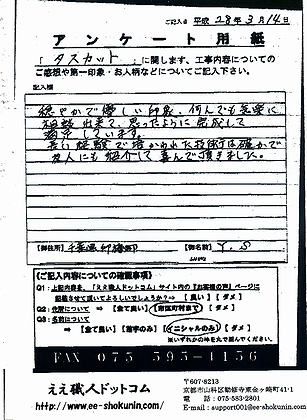 ご記入日 平成 28年3月14日
アンケート用紙
「タスカット」に関します、工事内容についての
ご感想や第一印象・お人柄などについてご記入下さい。
記入欄
穏やかで優しい印象、何んでも気楽に
相談出来て、思ったように完成して
満足しています。
長い経験で培かわれた技術は確かで
友人にも紹介して喜んで頂きました。
【御住所】千葉県印旛郡 【御名前】 Y.S
《ご記入内容についての確認事項》
Q1:上記内容を、「ええ職人ドットコム」サイト内の『お客様の声』ページに
記載させて頂いてよろしいでしょうか？⇒ 【 良い 】 【 ダメ 】
Q2:住所について ⇒【全て良い】【市区町村まで】【 ダメ 】
Q3:名前について
⇒【全て良い】【苗字のみ】【イニシャルのみ】【 ダメ 】
※いずれかの枠を丸で囲んでください。
FAX 075-595-4156
ええ職人ドットコム
http://www.ee-shokunin.com/
〒607-8213
京都市山科区勧修寺東金ヶ崎町41-1
電 話:075-583-2801
E-mail:info@ee-shokunin.com